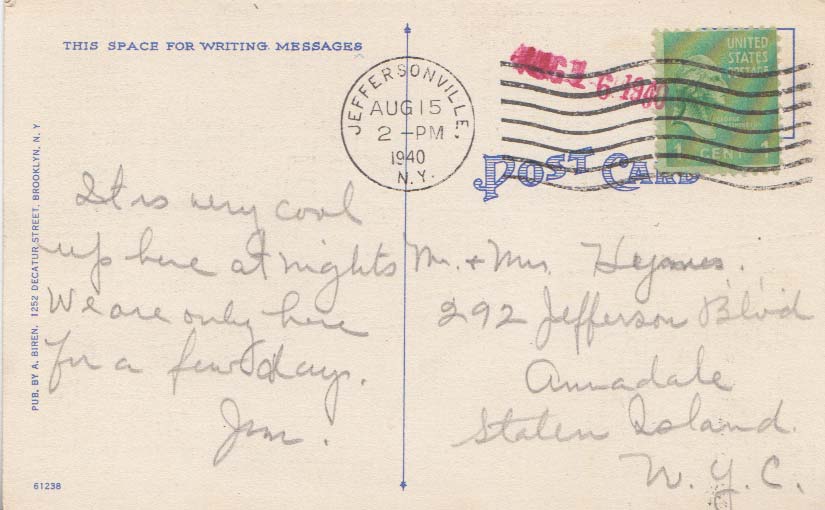 THIS SPACE FOR WRITING MESSAGES
JEFFERSONVILLE,
AUG 15
2 -PM
1940
N.Y.
6 1940
UNITED
STATES
POSTAGE
1 CENT 1
POST CARD
It is very cool
up here at nights
We are only here
for a few days.
Jim.
Mr. + Mrs. Heymes.
292 Jefferson Blvd
Annadale
Staten Island.
N.Y.C.
PUB. BY A. BIREN. 1252 DECATUR STREET, BROOKLYN, N. Y.
61238